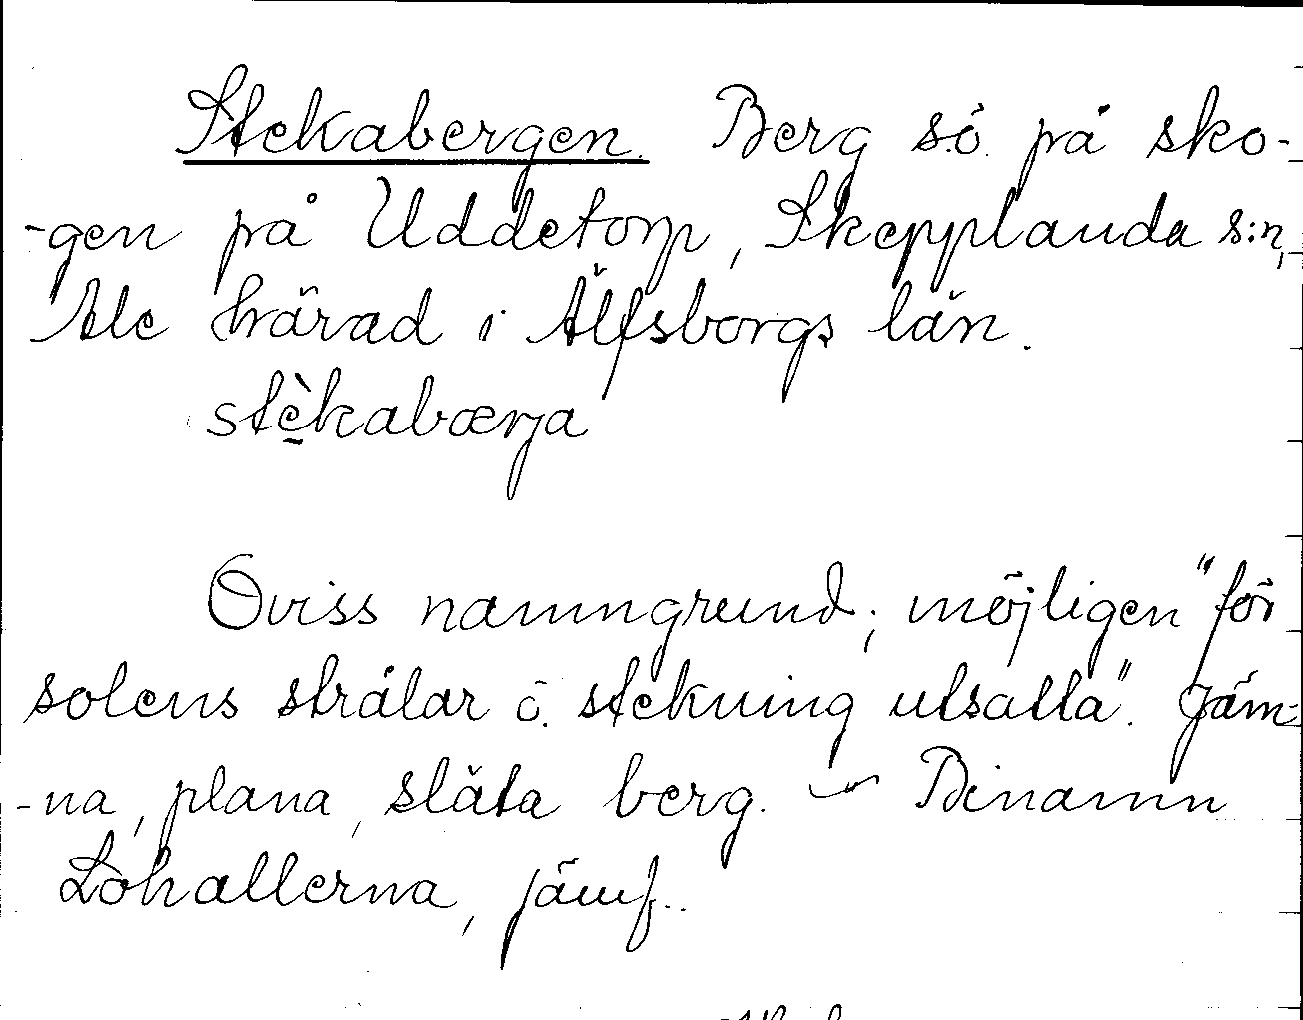 Stekabergen. Berg s.ö. på sko-
-gen på Uddetorp, Skepplanda s:n,
Ale härad i Älfsborgs län.
stèkabærja
Oviss namngrund; möjligen "för
solens strålar o. stekning utsatta". Jäm-
-na, plana, släta berg. — Binamn
Lohallerna, jämf..